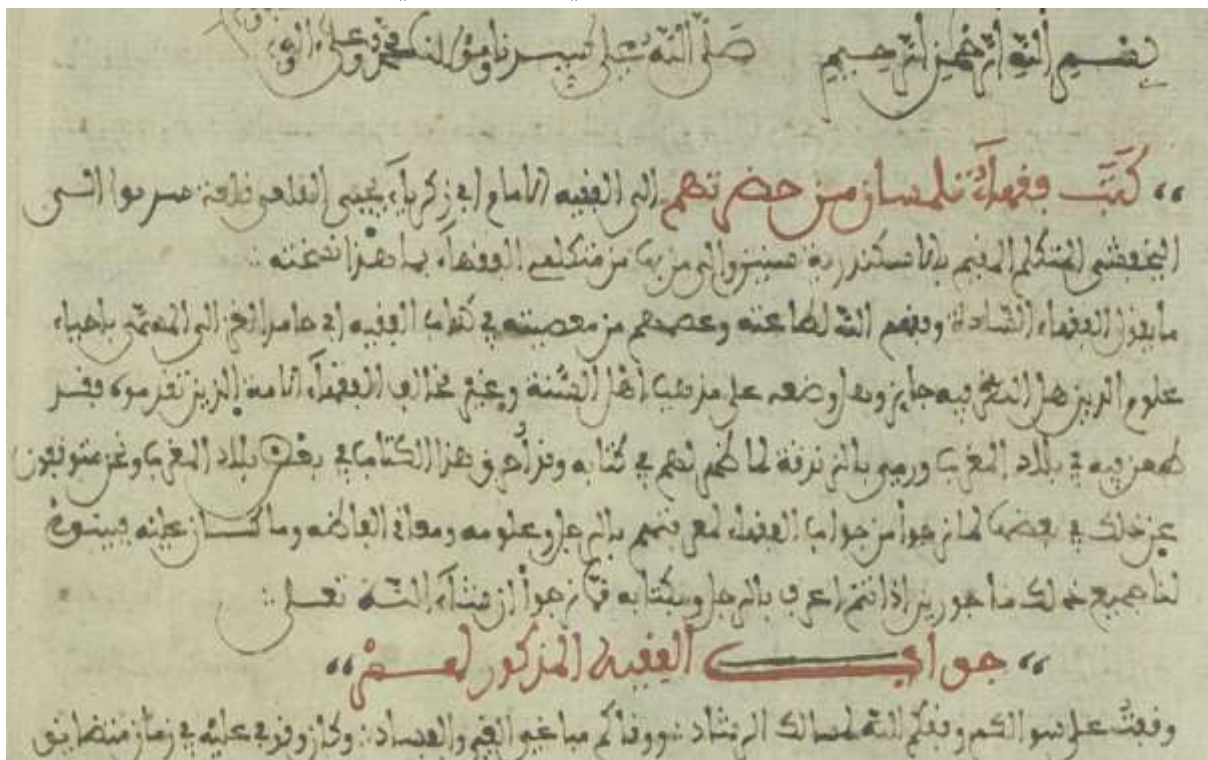 بسم الله الرحمن الرحيم صلى الله على سيدنا ومولانا محمد وعلى آله
كَتَبَ فقهاء تلمسان من حضرتهم إلى الفقيه الامام ابي زكرياء يحيى
المتكلم المقيم بالاسكندرية من متكلمي الفقهاء بما هذا نسخته
ما يقول الفقهاء السادة وفقهم الله لطاعته وعصمهم من معصيته في كتاب الفقيه ابي حامد الغزالي المسمى باحياء
علوم الدين هل النظر فيه جايز وهل وضعه على مذهب أهل السُّنة وغيرِ مخالف الفقهاء الامة الذين تقدموه فقد
طعن فيه في بلاد المغرب ورمي بالزندقة لما ظهر لهم في كتابه وقد أحرق هذا الكتاب في بعض بلاد المغرب ونحن متوقفون
عن ذلك في بعضها لما نرجوا من جواب الفقهاء لمعرفتهم بالرجل وعلومه ومعاني الفاظه وما كان عليه فبينوا
لنا جميع ذلك ماجورين اذ انتم اعرف بالرجل وبكتابه فيما نرجوا ان شاء الله تعلى
جواب الفقيه المذكور لهم
وقفت على سوالكم وفقكم الله لمسالك الرشاد ووقاكم مباغي والفساد وكان وقوفي عليه في زمان متضايق